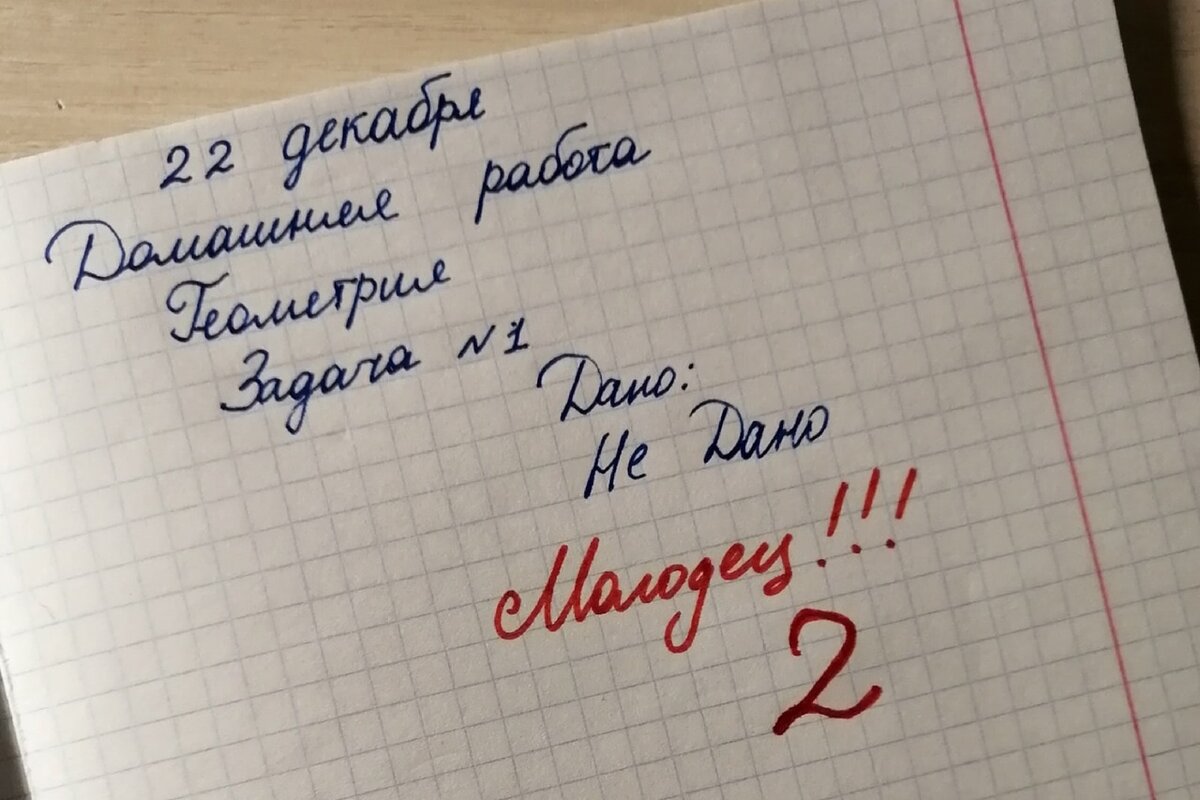 22 декабря
Домашняя работа
Геометрия
Задача №1
Дано:
Не Дано
Молодец!!!
2